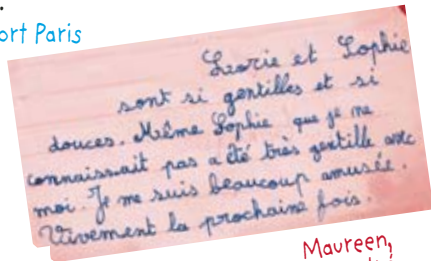 ort Paris
Leorie et Sophie
sont si gentilles et si
douces. Même Sophie que je ne
connaissait pas a été très gentille avec
moi. Je me suis beaucoup amusée.
Vivement la prochaine fois.
Maureen,